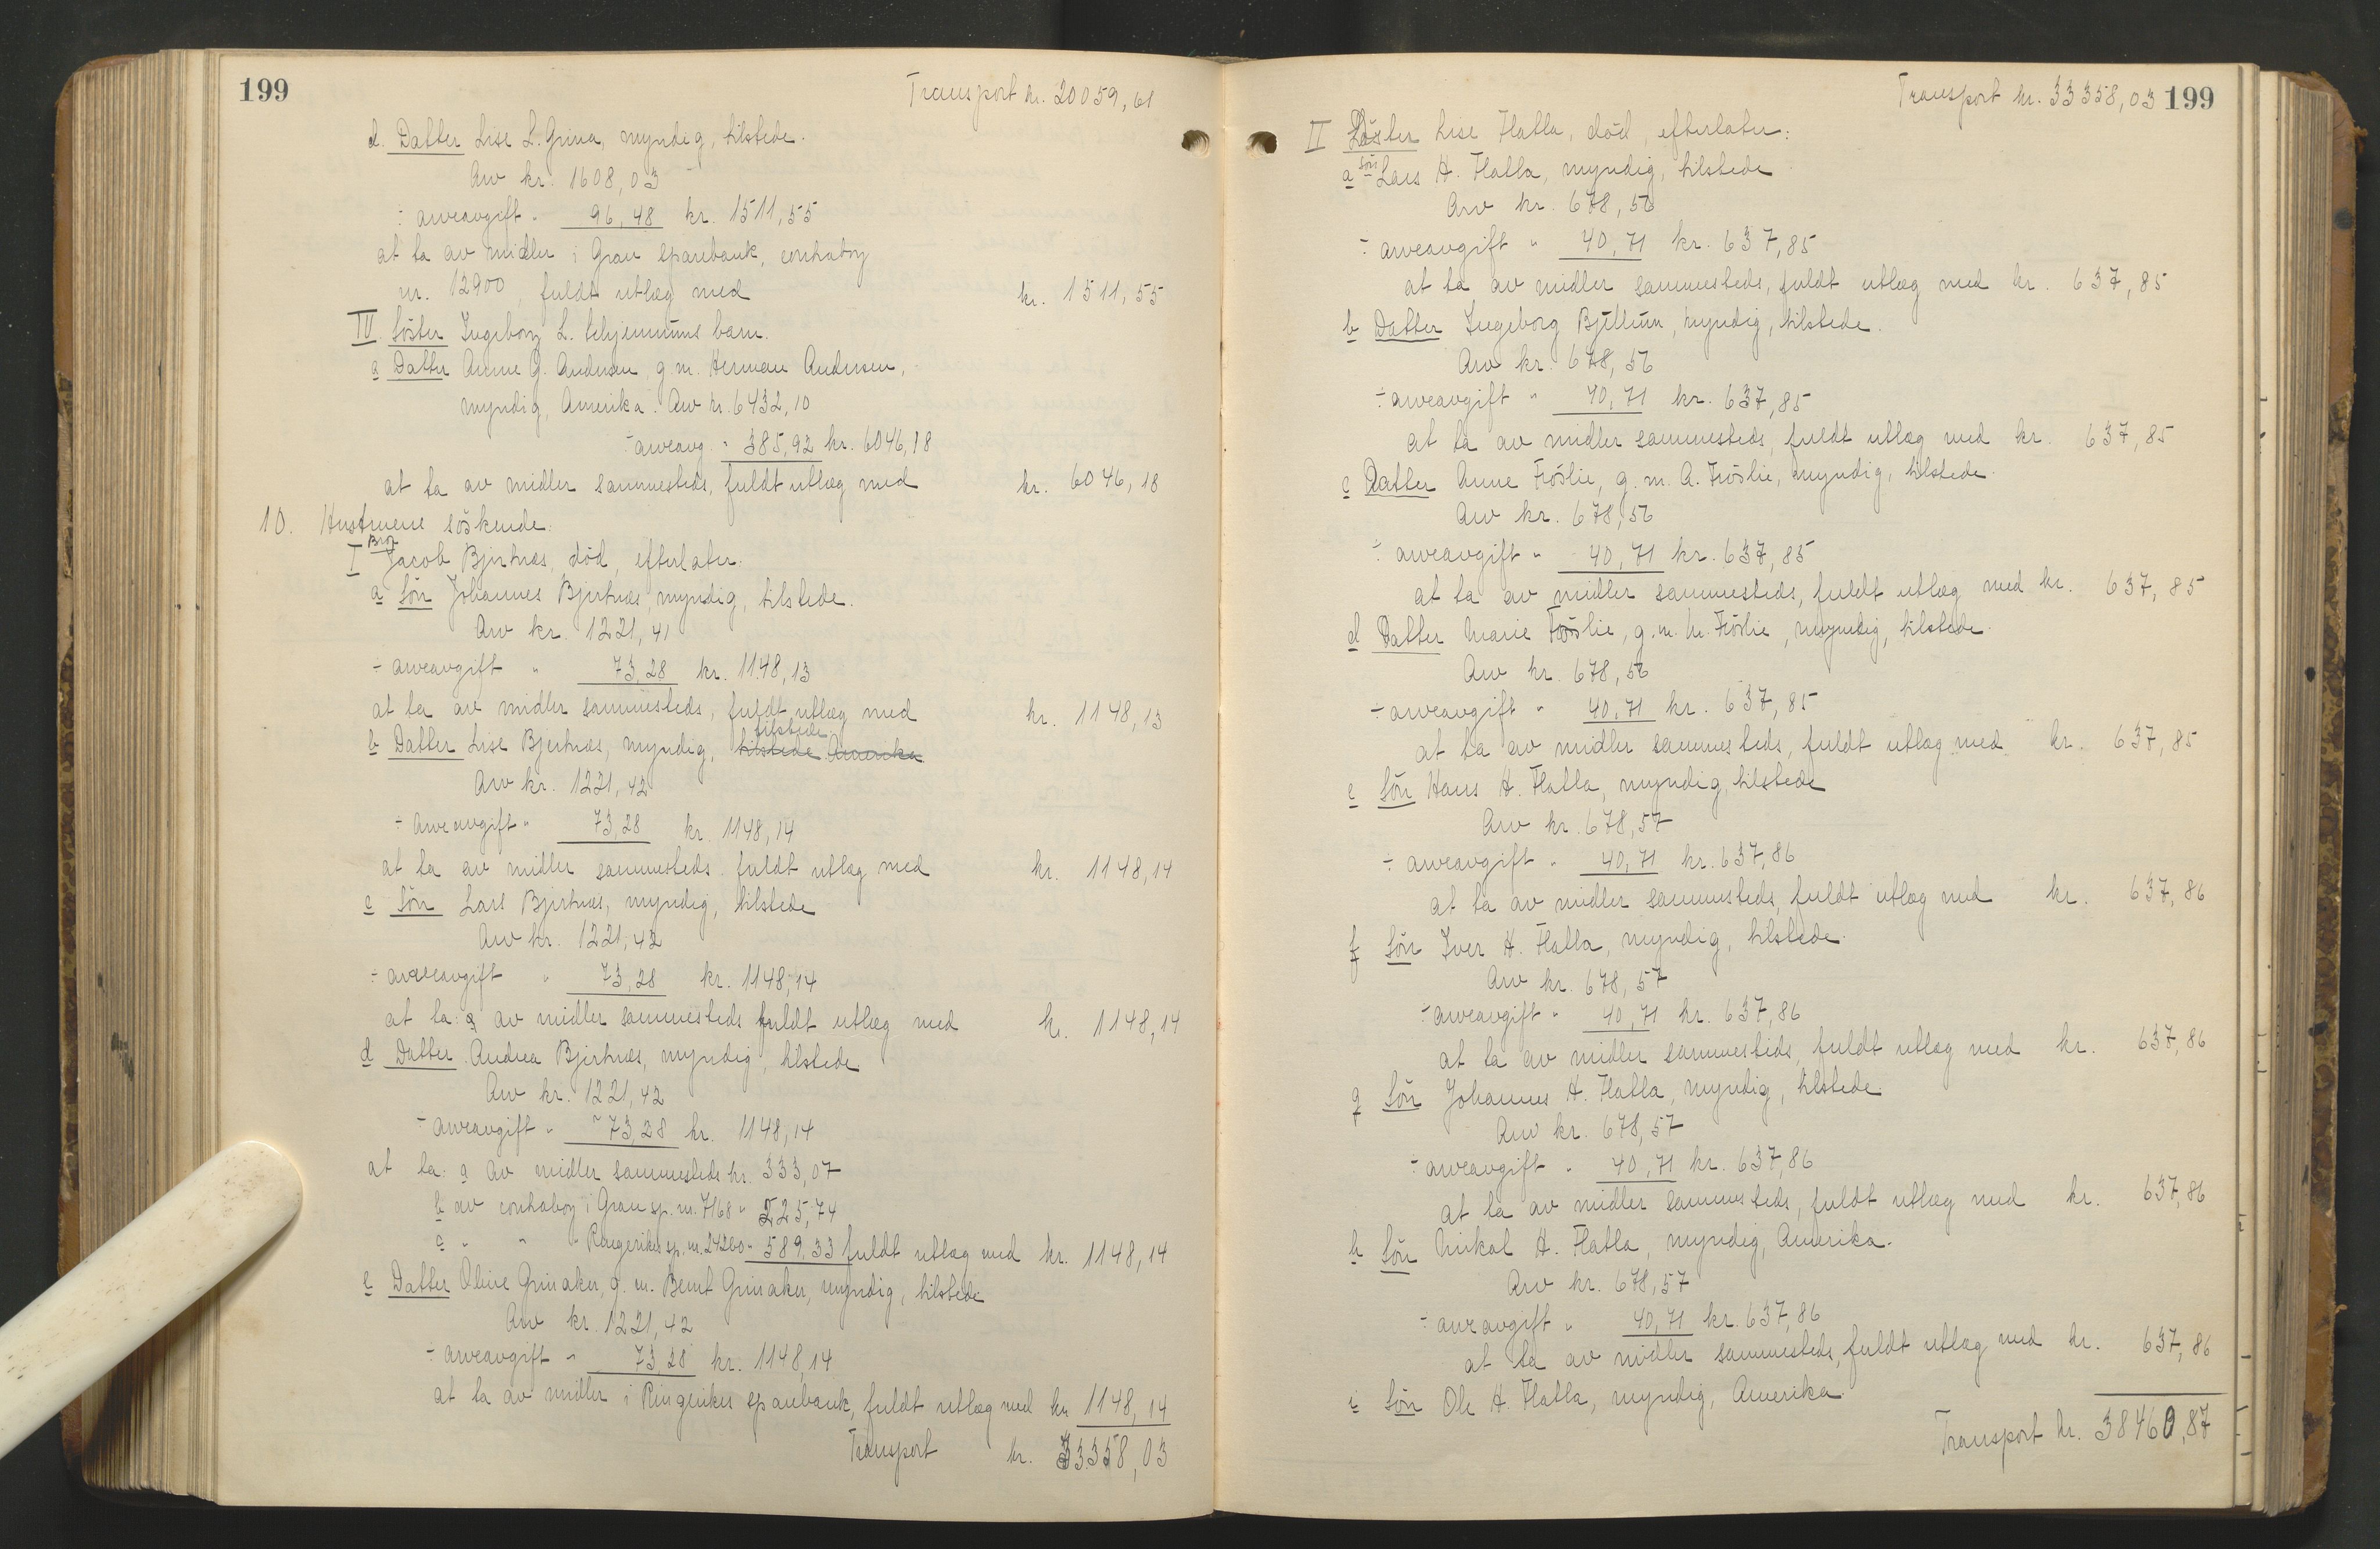 199
Transport kr. 20059,61
d. Datter Lise L. Grina, myndig, tilstede.
Arv kr. 1608,03
÷ arveavgift " 96,48 kr. 1511,55
at ta av midler i Gran sparebank, contrabog
nr. 12900, fuldt utlæg med kr. 1511,55
IV. Söster Ingeborg L. barn.
a Datter Anne G. Andersen, g.m. Herman Andersen,
myndig, Amerika. Arv kr. 6432,10
÷ arveavg. " 385,92 kr. 6046,18
at ta av midler sammesteds, fuldt utlæg med kr. 6046,18
10. Hustruens söskende:
I Bror Jacob Bjertnæs, död, efterlater:
a Sön Johannes Bjertnæs, myndig, tilstede.
Arv kr. 1221,41
÷ arveavgift " 73,28 kr. 1148,13
at ta av midler sammesteds, fuldt utlæg med kr. 1148,13
b Datter Lise Bjertnæs, myndig, tilstede Amerika tilstede
Arv kr. 1221,42
÷ Arveavgift " 73,28 kr. 1148,14
at ta av midler sammesteds fuldt utlæg med kr. 1148,14
c Sön Lars Bjertnæs, myndig, tilstede
Arv kr. 1221,42
÷ arveavgift " 73,28 kr. 1148,14
at ta: a av midler sammesteds fuldt utlæg med kr. 1148,14
d Datter Andrea Bjertnæs, myndig, tilstede
Arv kr. 1221,42
÷ arveavgift " 73,28 kr. 1148,14
at ta: a av midler sammesteds kr. 333,07
b av contrabog i Gran sp. nr. 7168 " 225,74
c " " " Ringerikes sp. nr. 24260 " 589,33 fuldt utlæg med kr. 1148,14
e Datter Oline Grinaker, g.m. Bernt Grinaker, myndig, tilstede
Arv kr. 1221,42
÷ arveavgift " 73,28 kr. 1148,14
at ta av midler i Ringerikes sparebank, fuldt utlæg med kr. 1148,14
Transport kr. 33358,03
Transport kr. 33358,03 199
II Söster Lise Flatla, död, efterlater:
a Sön Lars H. Flatla, myndig, tilstede
Arv kr. 678,56
÷ arveavgift " 40,71 kr. 637,85
at ta av midler sammesteds, fuldt utlæg med kr. 637,85
b Datter Ingeborg Bjellum, myndig, tilstede.
Arv kr. 678,56
÷ arveavgift " 40,71 kr. 637,85
at ta av midler sammesteds, fuldt utlæg med kr. 637,85
c Datter Anne Fröslie, g.m. A. Fröslie, myndig, tilstede.
Arv kr. 678,56
÷ arveavgift " 40,71 kr. 637,85
at ta av midler sammesteds, fuldt utlæg med kr. 637,85
d Datter Marie Fröslie, g.m. M. Fröslie, myndig, tilstede.
Arv kr. 678,56
÷ arveavgift " 40,71 kr. 637,85
at ta av midler sammesteds, fuldt utlæg med kr. 637,85
e Sön Hans H. Flatla, myndig, tilstede
Arv kr. 678,57
÷ arveavgift " 40,71 kr. 637,86
at ta av midler sammesteds, fuldt utlæg med kr. 637,86
f Sön Iver H. Flatla, myndig, tilstede.
Arv kr. 678,57
÷ arveavgift " 40,71 kr. 637,86
at ta av midler sammesteds, fuldt utlæg med kr. 637,86
g Sön Johannes H. Flatla, myndig, tilstede.
Arv kr. 678,57
÷ arveavgift " 40,71 kr. 637,86
at ta av midler sammesteds, fuldt utlæg med kr. 637,86
h Sön Mikal H. Flatla, myndig, Amerika.
Arv kr. 678,57
÷ arveavgift " 40,71 kr. 637,86
at ta av midler sammesteds, fuldt utlæg med kr. 637,86
i Sön Ole H. Flatla, myndig, Amerika.
Transport kr. 38460,87